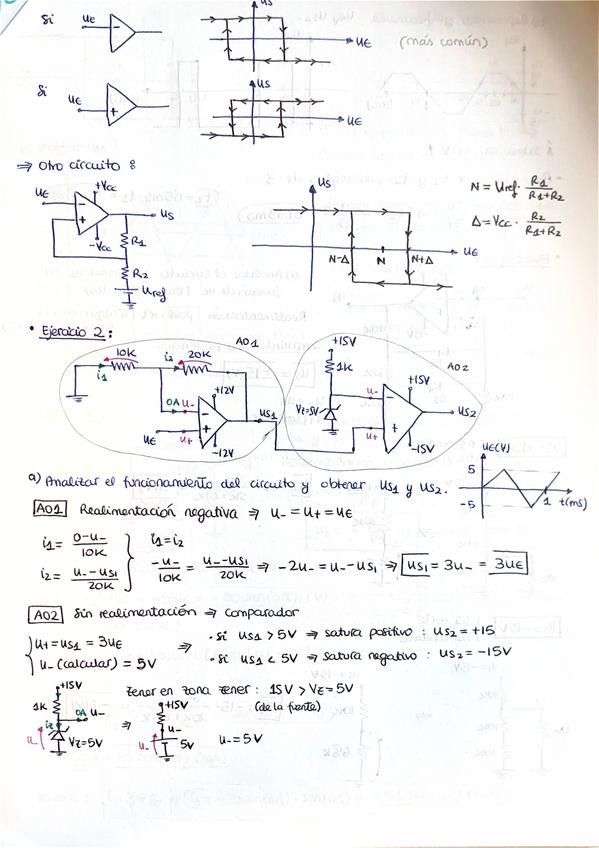 Si
uE
−
us
uE
(más común)
Si
uE
+
us
uE
⇒ Otro circuito :
uE
+Vcc
−
+
us
−Vcc
R1
R2
uref
us
uE
N-Δ
N
N+Δ
N = uref · R1/(R1+R2)
Δ = Vcc · R2/(R1+R2)
• Ejercicio 2 :
AO1
10K
i1
i2
20K
0A
u-
−
+12V
us1
uE
u+
+
−12V
+15V
1K
AO2
VZ=5V
u-
−
+15V
us2
u+
+
−15V
a) Analizar el funcionamiento del circuito y obtener us1 y us2.
uE(V)
5
−5
1
t(ms)
AO1 Realimentación negativa ⇒ u- = u+ = uE
i1 = (0-u-)/10K
i2 = (u- - us1)/20K
i1 = i2
-u-/10K = (u- - us1)/20K ⇒ -2u- = u- - us1 ⇒ us1 = 3u- = 3uE
AO2 Sin realimentación → comparador
u+ = us1 = 3uE
u- (calcular) = 5V
⇒
· Si us1 > 5V ⇒ satura positivo : us2 = +15
· Si us1 < 5V ⇒ satura negativo : us2 = −15V
+15V
1K
0A
u-
iz
u-
VZ=5V
⇒
Zener en zona zener : 15V > VZ = 5V
(de la fuente)
+15V
u-
u-
5V
u- = 5V